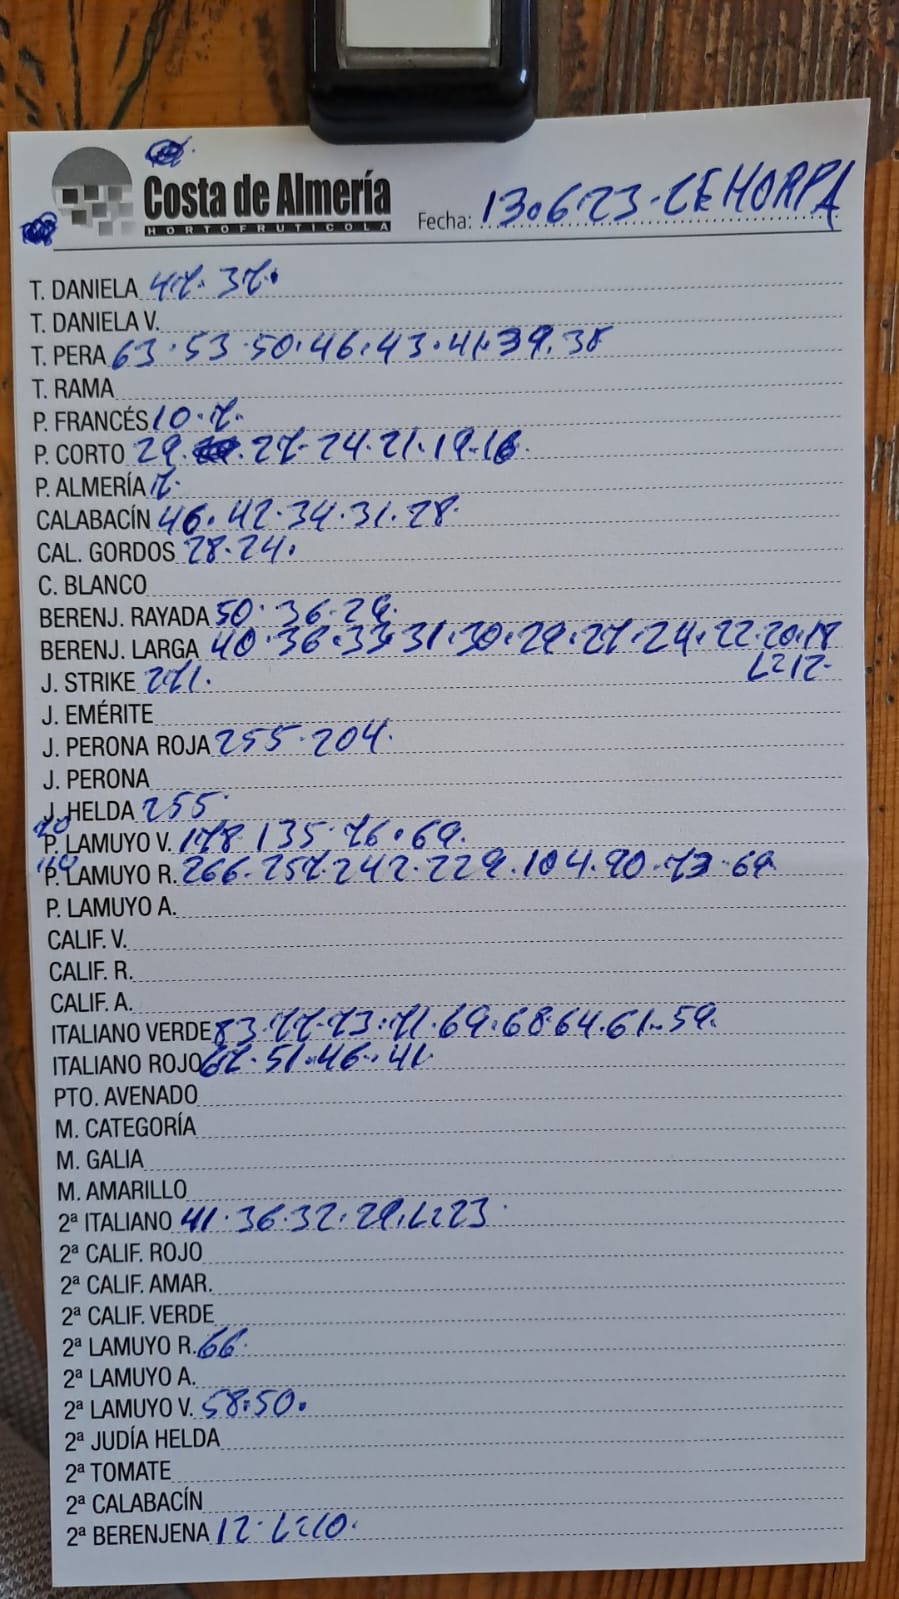 Costa de Almería
HORTOFRUTICOLA
Fecha: 13.6.23. CEHORPA
T. DANIELA 47. 37.
T. DANIELA V.
T. PERA 63.53.50.46.43.41.39.38
T. RAMA
P. FRANCÉS 10.7.
P. CORTO 29. 27.24.21.19.16.
P. ALMERÍA 17.
CALABACÍN 46.42.34.31.28.
CAL. GORDOS 28.24.
C. BLANCO
BERENJ. RAYADA 50.36.29.
BERENJ. LARGA 40.36.33.31.30.29.27.24.22.20.18
L=12.
J. STRIKE 271.
J. EMÉRITE
J. PERONA ROJA 255.204.
J. PERONA
J. HELDA 255.
P. LAMUYO V. 178.135.76.69.
P. LAMUYO R. 266.257.242.229.104.90.73.69
P. LAMUYO A.
CALIF. V.
CALIF. R.
CALIF. A.
ITALIANO VERDE 83.77.73.71.69.68.64.61.59.
ITALIANO ROJO 67.51.46.41.
PTO. AVENADO
M. CATEGORÍA
M. GALIA
M. AMARILLO
2ª ITALIANO 41.36.32.29.L=23.
2ª CALIF. ROJO
2ª CALIF. AMAR.
2ª CALIF. VERDE
2ª LAMUYO R. 66.
2ª LAMUYO A.
2ª LAMUYO V. 58.50.
2ª JUDÍA HELDA
2ª TOMATE
2ª CALABACÍN
2ª BERENJENA 12.L=10.